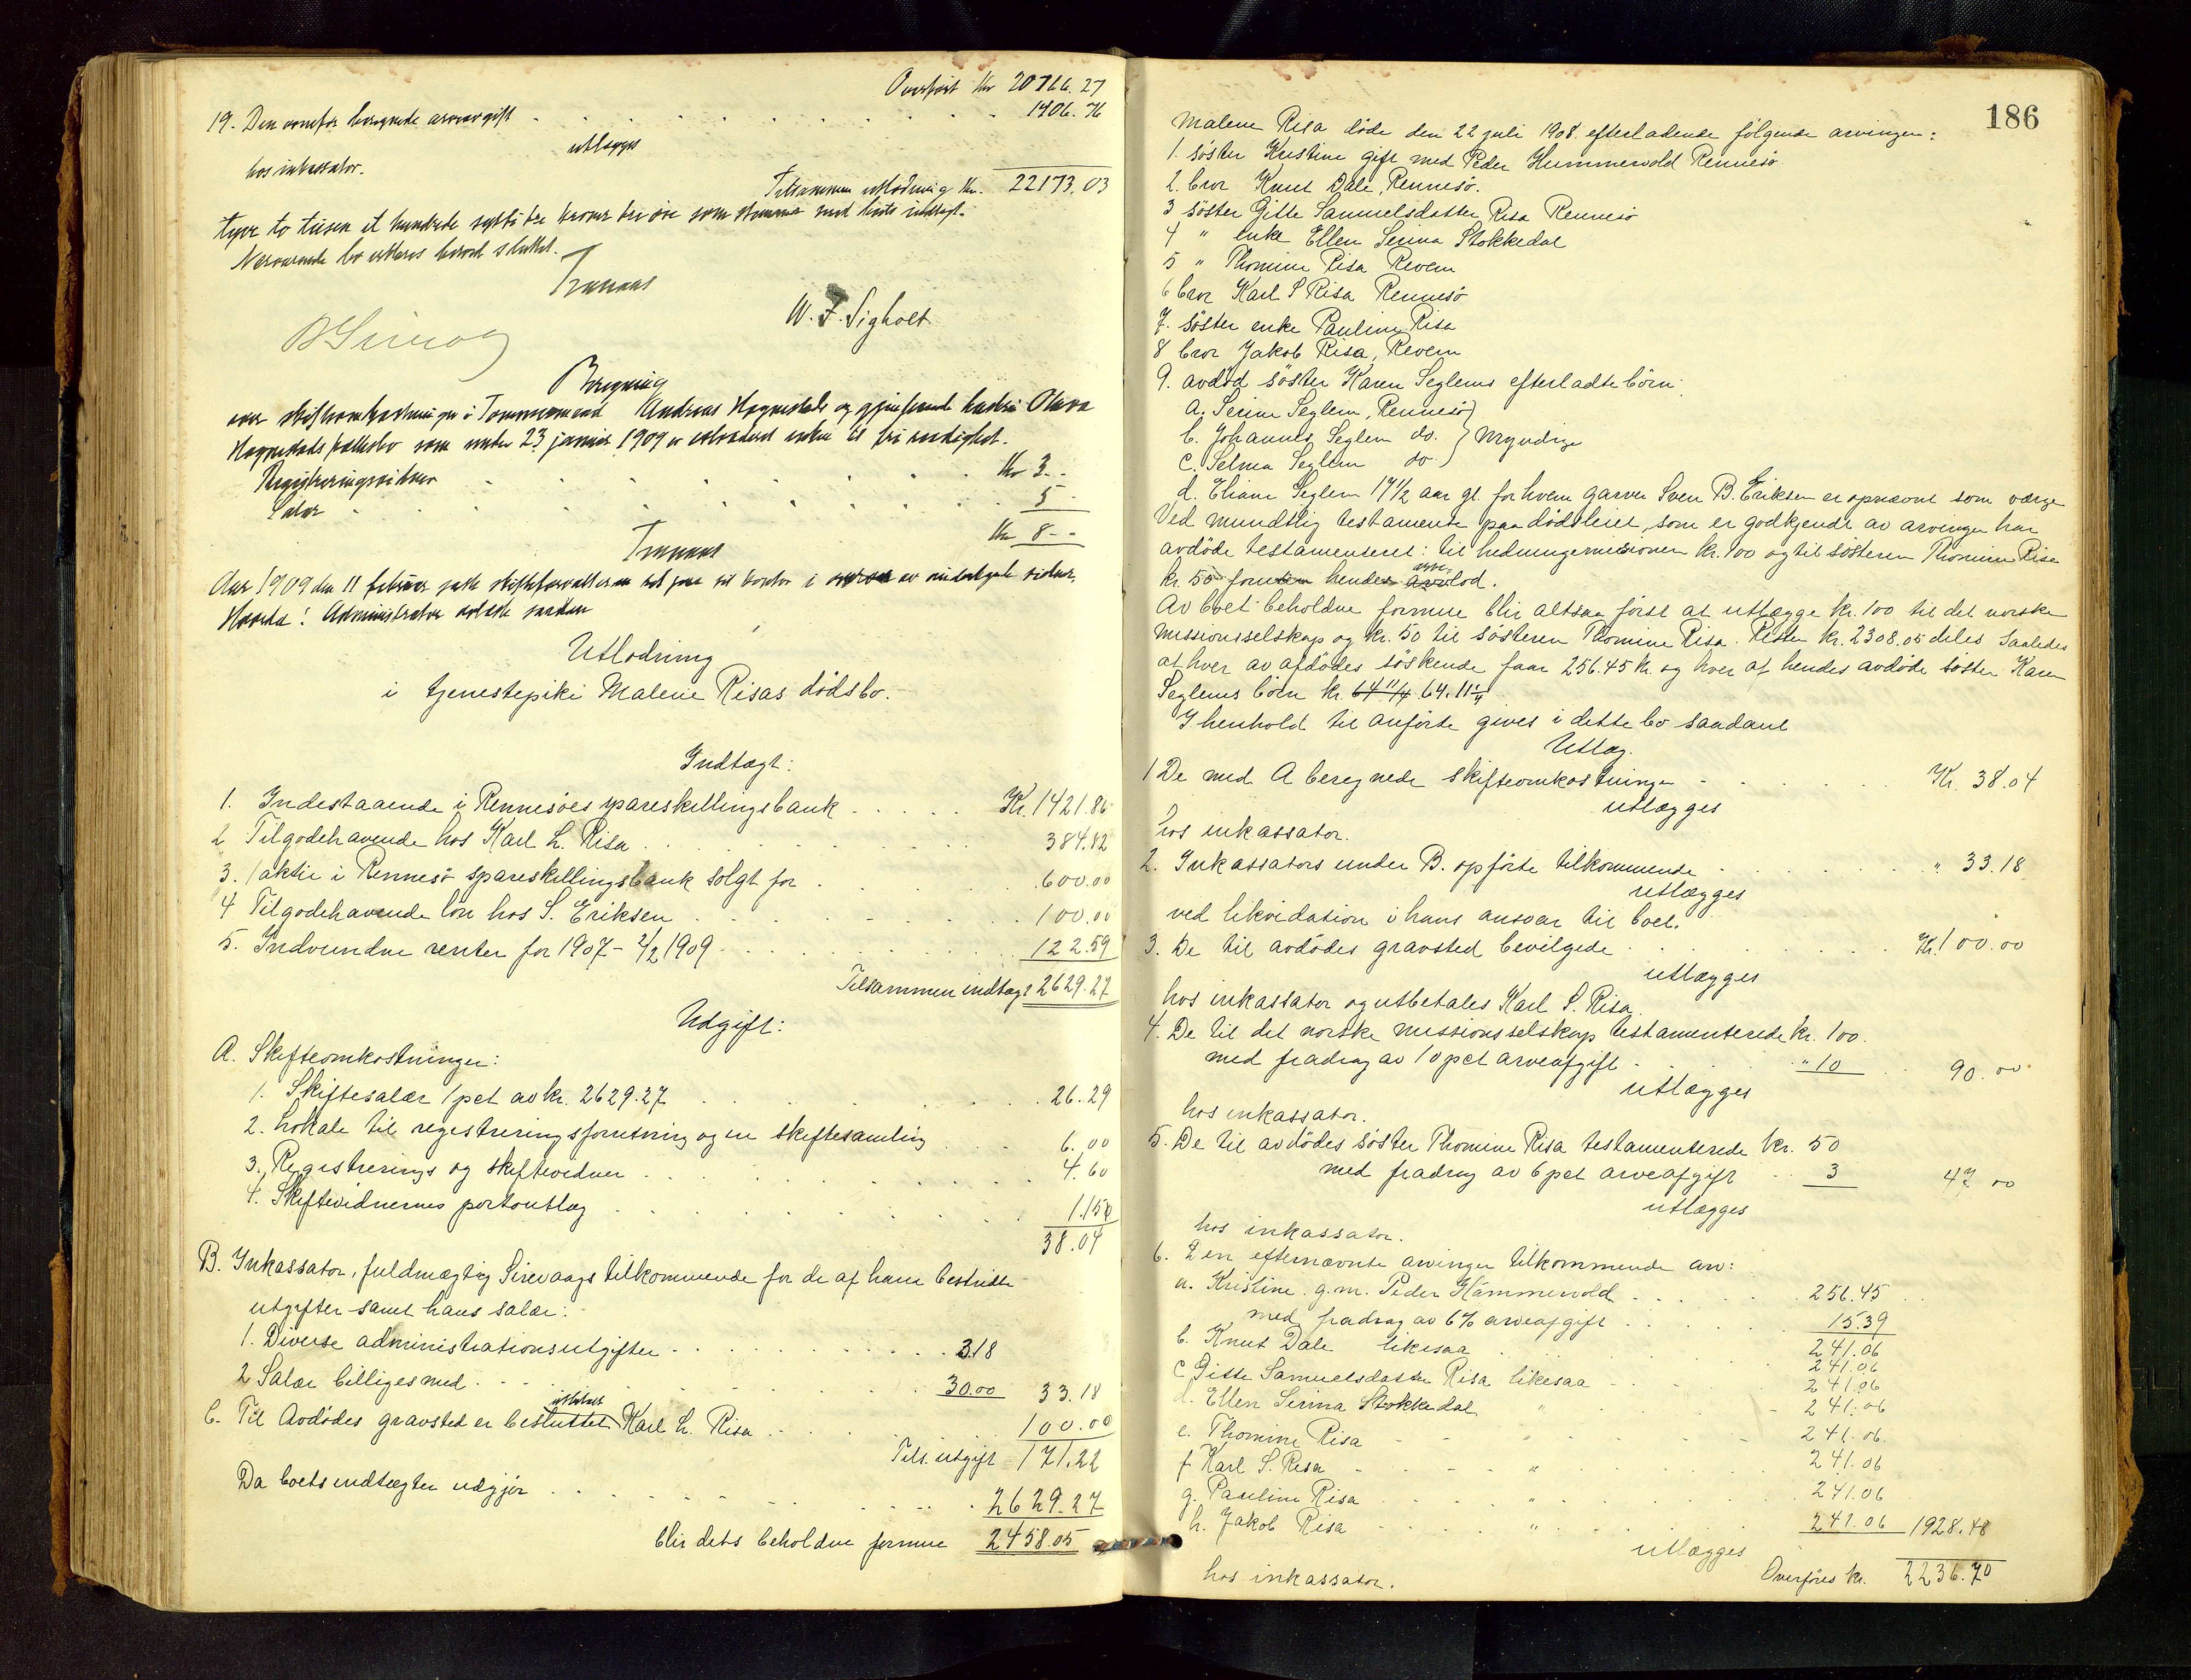 Overført Kr 20766.27
19. Den ovenfor beregnede arveavgift . . . 1406.76
utlægges
hos inkassator.
Tilsammen utlodning Kr. 22173.03
tyve to tusen et hundrede sytti tre kroner tre øre som stemmer med boets indtægt.
Nærværende bo erklæres herved sluttet.
W. F. Sigholt
Beregning
over skifteomkostninger i Tømmermand Andreas Haguestads og gjenlevende hustru Olava
Haguestads fællesbo som under 23 januar 1909 er extraderet enken til fri raadighet.
Registreringsvidner . . . Kr 3.-
Salær . . . 5 -
Kr 8--
Aar 1909 den 11 februar
Utlodning
i tjenestepike Malene Risas dødsbo.
Indtægt:
1. Indestaaende i Rennesöes spareskillingsbank . . . Kr. 1421.86
2 Tilgodehavende hos Karl L. Risa . . . 384.82
3. 1 aktie i Rennesö spareskillingsbank solgt for . . . 600.00
4 Tilgodehavende lön hos S. Eriksen . . . 100.00
5. Indvundne renter for 1907 - 2/2 1909 . . . 122.59
Tilsammen indtægt 2629.27
Udgift:
A. Skifteomkostninger:
1. Skiftesalær 1 pct av kr. 2629.27 . . . 26.29
2. Lokale til registreringsforretning og en skiftesamling . . . 6.00
3. Registrerings og skiftevidner . . . 4.60
4. Skiftevidnernes portoutlæg . . . 1.15
38.04
B. Inkassator, fuldmægtig Sirevaags tilkommende for de af ham bestridte
utgifter samt hans salær:
1. Diverse administrationsutgifter . . . 3.18
2 Salær billiges med . . . 30.00 33.18
C. Til Avdödes gravsted er besluttet utbetalt Karl L. Risa . . . 100.00
Tils. utgift 171.22
Da boets indtægter udgjör . . . 2629.27
blir dets beholdne formue 2458.05
186
Malene Risa döde den 22 juli 1908 efterladende fölgende arvinger:
1. söster Kristine gift med Peder Hummervold Rennesö
2. bror Knut Dale, Rennesö.
3 söster Gitte Samuelsdatter Risa Rennesö
4 " enke Ellen Serina Stokkedal
5 " Thomine Risa Revem
6 bror Karl S Risa Rennesö
7. söster enke Pauline Risa
8 bror Jakob Risa, Revem
9. avdöd söster Karen Seglems efterladte börn:
a. Serine Seglem, Rennesö
b. Johannes Seglem do. } myndige
c. Selma Seglem do.
d. Eliane Seglem 17 1/2 aar gl. for hvem garver Sven B. Eriksen er opnævnt som værge
Ved mundtlig testamente paa dödsleiet, som er godkjendt av arvinger har
avdöde testamenteret: til hedningemisionen kr. 100 og til sösteren Thomine Risa
kr. 50 foruten hendes arvelod.
Av boet beholdne formue blir altsaa först at utlægge kr. 100 til det norske
missionsselskap og kr. 50 til sösteren Thomine Risa. Resten kr. 2308.05 deles saaledes
at hver av afdödes söskende faar 256.45 kr. og hver af hendes avdöde söster Karen
Seglems börn kr. 64 11/4 64.11 1/4
I henhold til anförte gives i dette bo saadant
Utlæg.
1 De med A beregnede skifteomkostninger . . . Kr. 38.04
utlægges
hos inkassator.
2. Inkassators under B. opförte tilkommende . . . " 33.18
utlægges
ved likvidation i hans ansvar til boet.
3. De til avdödes gravsted bevilgede . . . Kr. 100.00
utlægges
hos inkassator og utbetales Karl S. Risa.
4. De til det norske missionsselskap testamenterede Kr. 100.
med fradrag av 10 pct arveafgift . . . " 10 . . 90.00
utlægges
hos inkassator.
5. De til avdödes söster Thomine Risa testamenterede kr. 50
med fradrag av 6 pct arveafgift . . 3 47 00
utlægges
hos inkassator.
6. Den efternævnte arvinger tilkommende arv:
a. Kristine g.m. Peder Hämmervold . . . 256.45
med fradrag av 6% arveafgift . . . 15.39
241.06
b. Knut Dale likesaa . . . 241.06
c Gitte Samuelsdatter Risa likesaa . . . 241.06
d. Ellen Serina Stokkedal " . . . 241.06
e. Thomine Risa " . . . 241.06.
f Karl S. Risa " . . . 241.06
g. Pauline Risa " . . . 241.06
h. Jakob Risa " . . . 241.06 1928.48
utlægges
hos inkassator.
Overföres kr. 2236.70